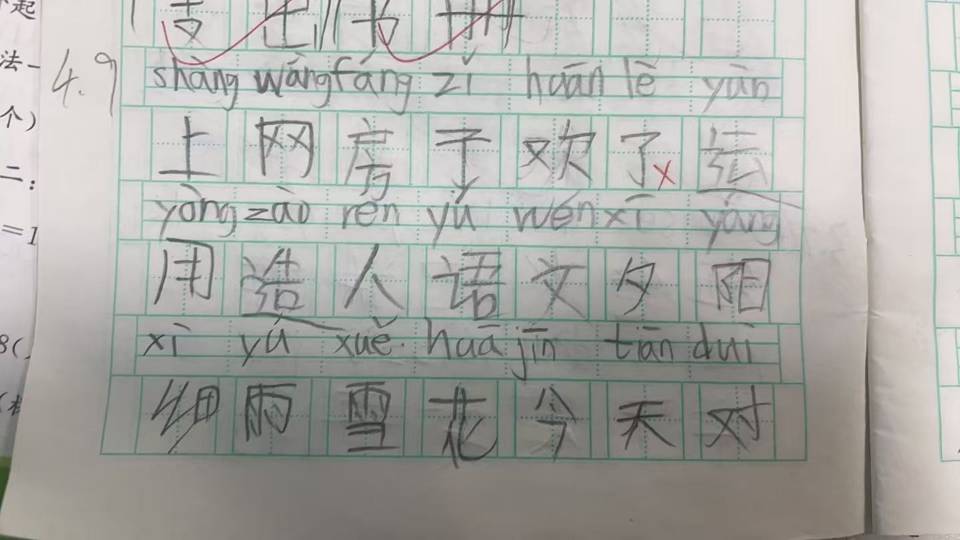 起
法一
个)
二:
=1
8(
4.9
shàng wǎng fáng zǐ huān lè yùn
上 网 房 子 欢 了 运
yòng zào rén yǔ wén xī yáng
用 造 人 语 文 夕 阳
xì yǔ xuě huā jīn tiān duì
细 雨 雪 花 今 天 对